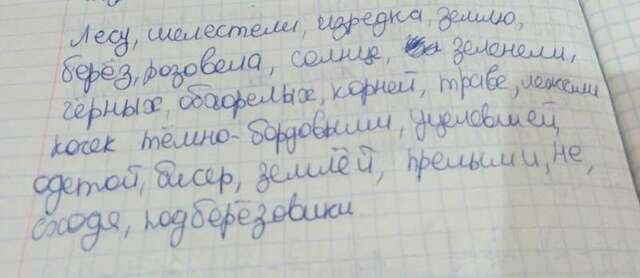 лесу, шелестели, изредка, землю,
берёз, розовела, солнце, зеленели,
чёрных, обгорелых, корней, траве, лежали
кочек тёмно-бордовыми, уцелевшей,
одетой, бисер, землёй, прелыми, не,
сходя, подберёзовики